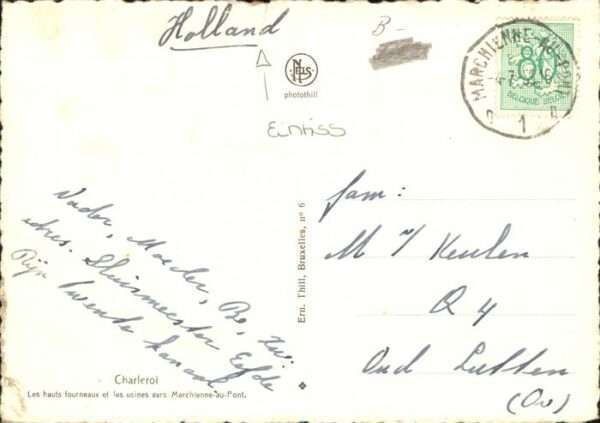 Holland
B-
NELS
photothill
MARCHIENNE-AU-PONT
1
80
BELGIQUE BELGIE
Vader, Moeder, Be, Zus.
adres. Sluismeester Eefde
Twente kanaal
Ern. Thill, Bruxelles, nº 6
fam:
M v/ Keulen
Q 4
Oud Lutten
(Ov)
Charleroi
Les hauts fourneaux et les usines vers Marchienne-au-Pont.